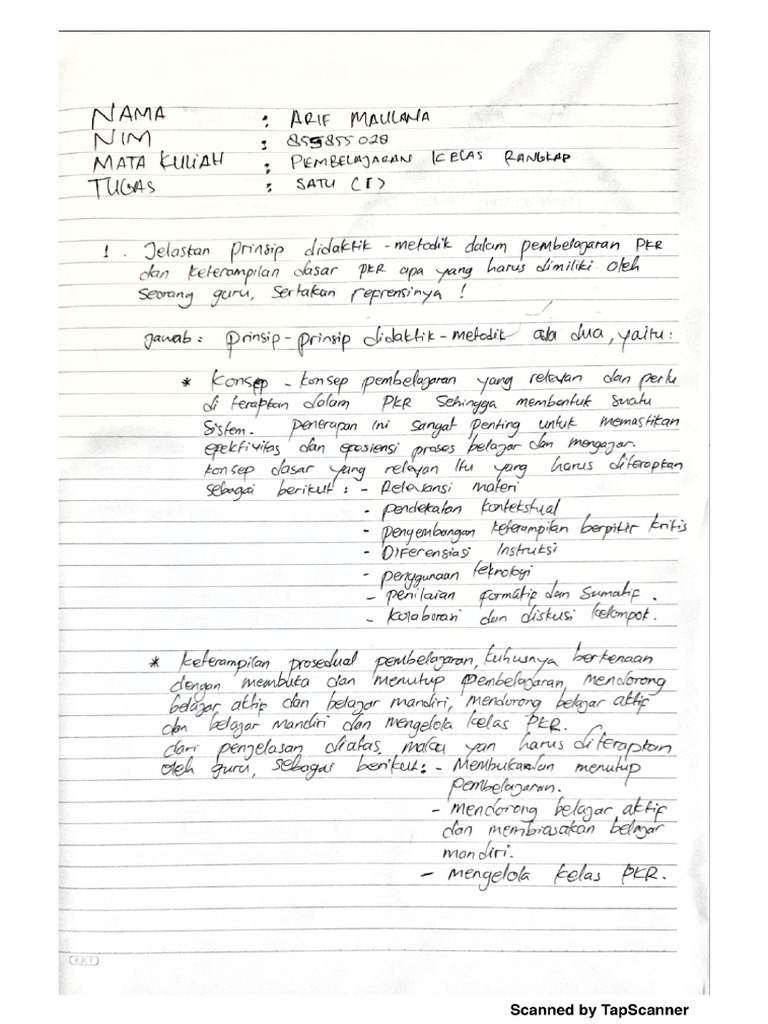 NAMA : ARIF MAULANA
NIM : 855855028
MATA KULIAH : PEMBELAJARAN KELAS RANGKAP
TUGAS : SATU (I)
1. Jelaskan prinsip didaktik - metodik dalam pembelajaran PKR
dan keterampilan dasar PKR apa yang harus dimiliki oleh
seorang guru, sertakan reprensinya !
Jawab : prinsip - prinsip didaktik - metodik ada dua, yaitu :
* Konsep - konsep pembelajaran yang relevan dan perlu
di terapkan dalam PKR sehingga membentuk suatu
sistem. penerapan ini sangat penting untuk memastikan
epektivitas dan epesiensi proses belajar dan mengajar.
konsep dasar yang relevan itu yang harus diterapkan
sebagai berikut : - Relevansi materi
- pendekatan kontekstual
- pengembangan keterampilan berpikir kritis
- Diferensiasi Instruksi
- penggunaan teknologi
- penilaian formatif dan sumatif .
- kolaborasi dan diskusi kelompok.
* keterampilan prosedual pembelajaran, kuhusnya berkenaan
dengan membuka dan menutup pembelajaran, mendorong
belajar aktif dan belajar mandiri, mendorong belajar aktif
dan belajar mandiri dan mengelola kelas PKR.
dari penjelasan diatas, maka yan harus diterapkan
oleh guru, sebagai berikut : - Membuka dan menutup
pembelajaran.
- mendorong belajar aktif
dan membiasakan belajar
mandiri.
- mengelola kelas PKR.
Scanned by TapScanner